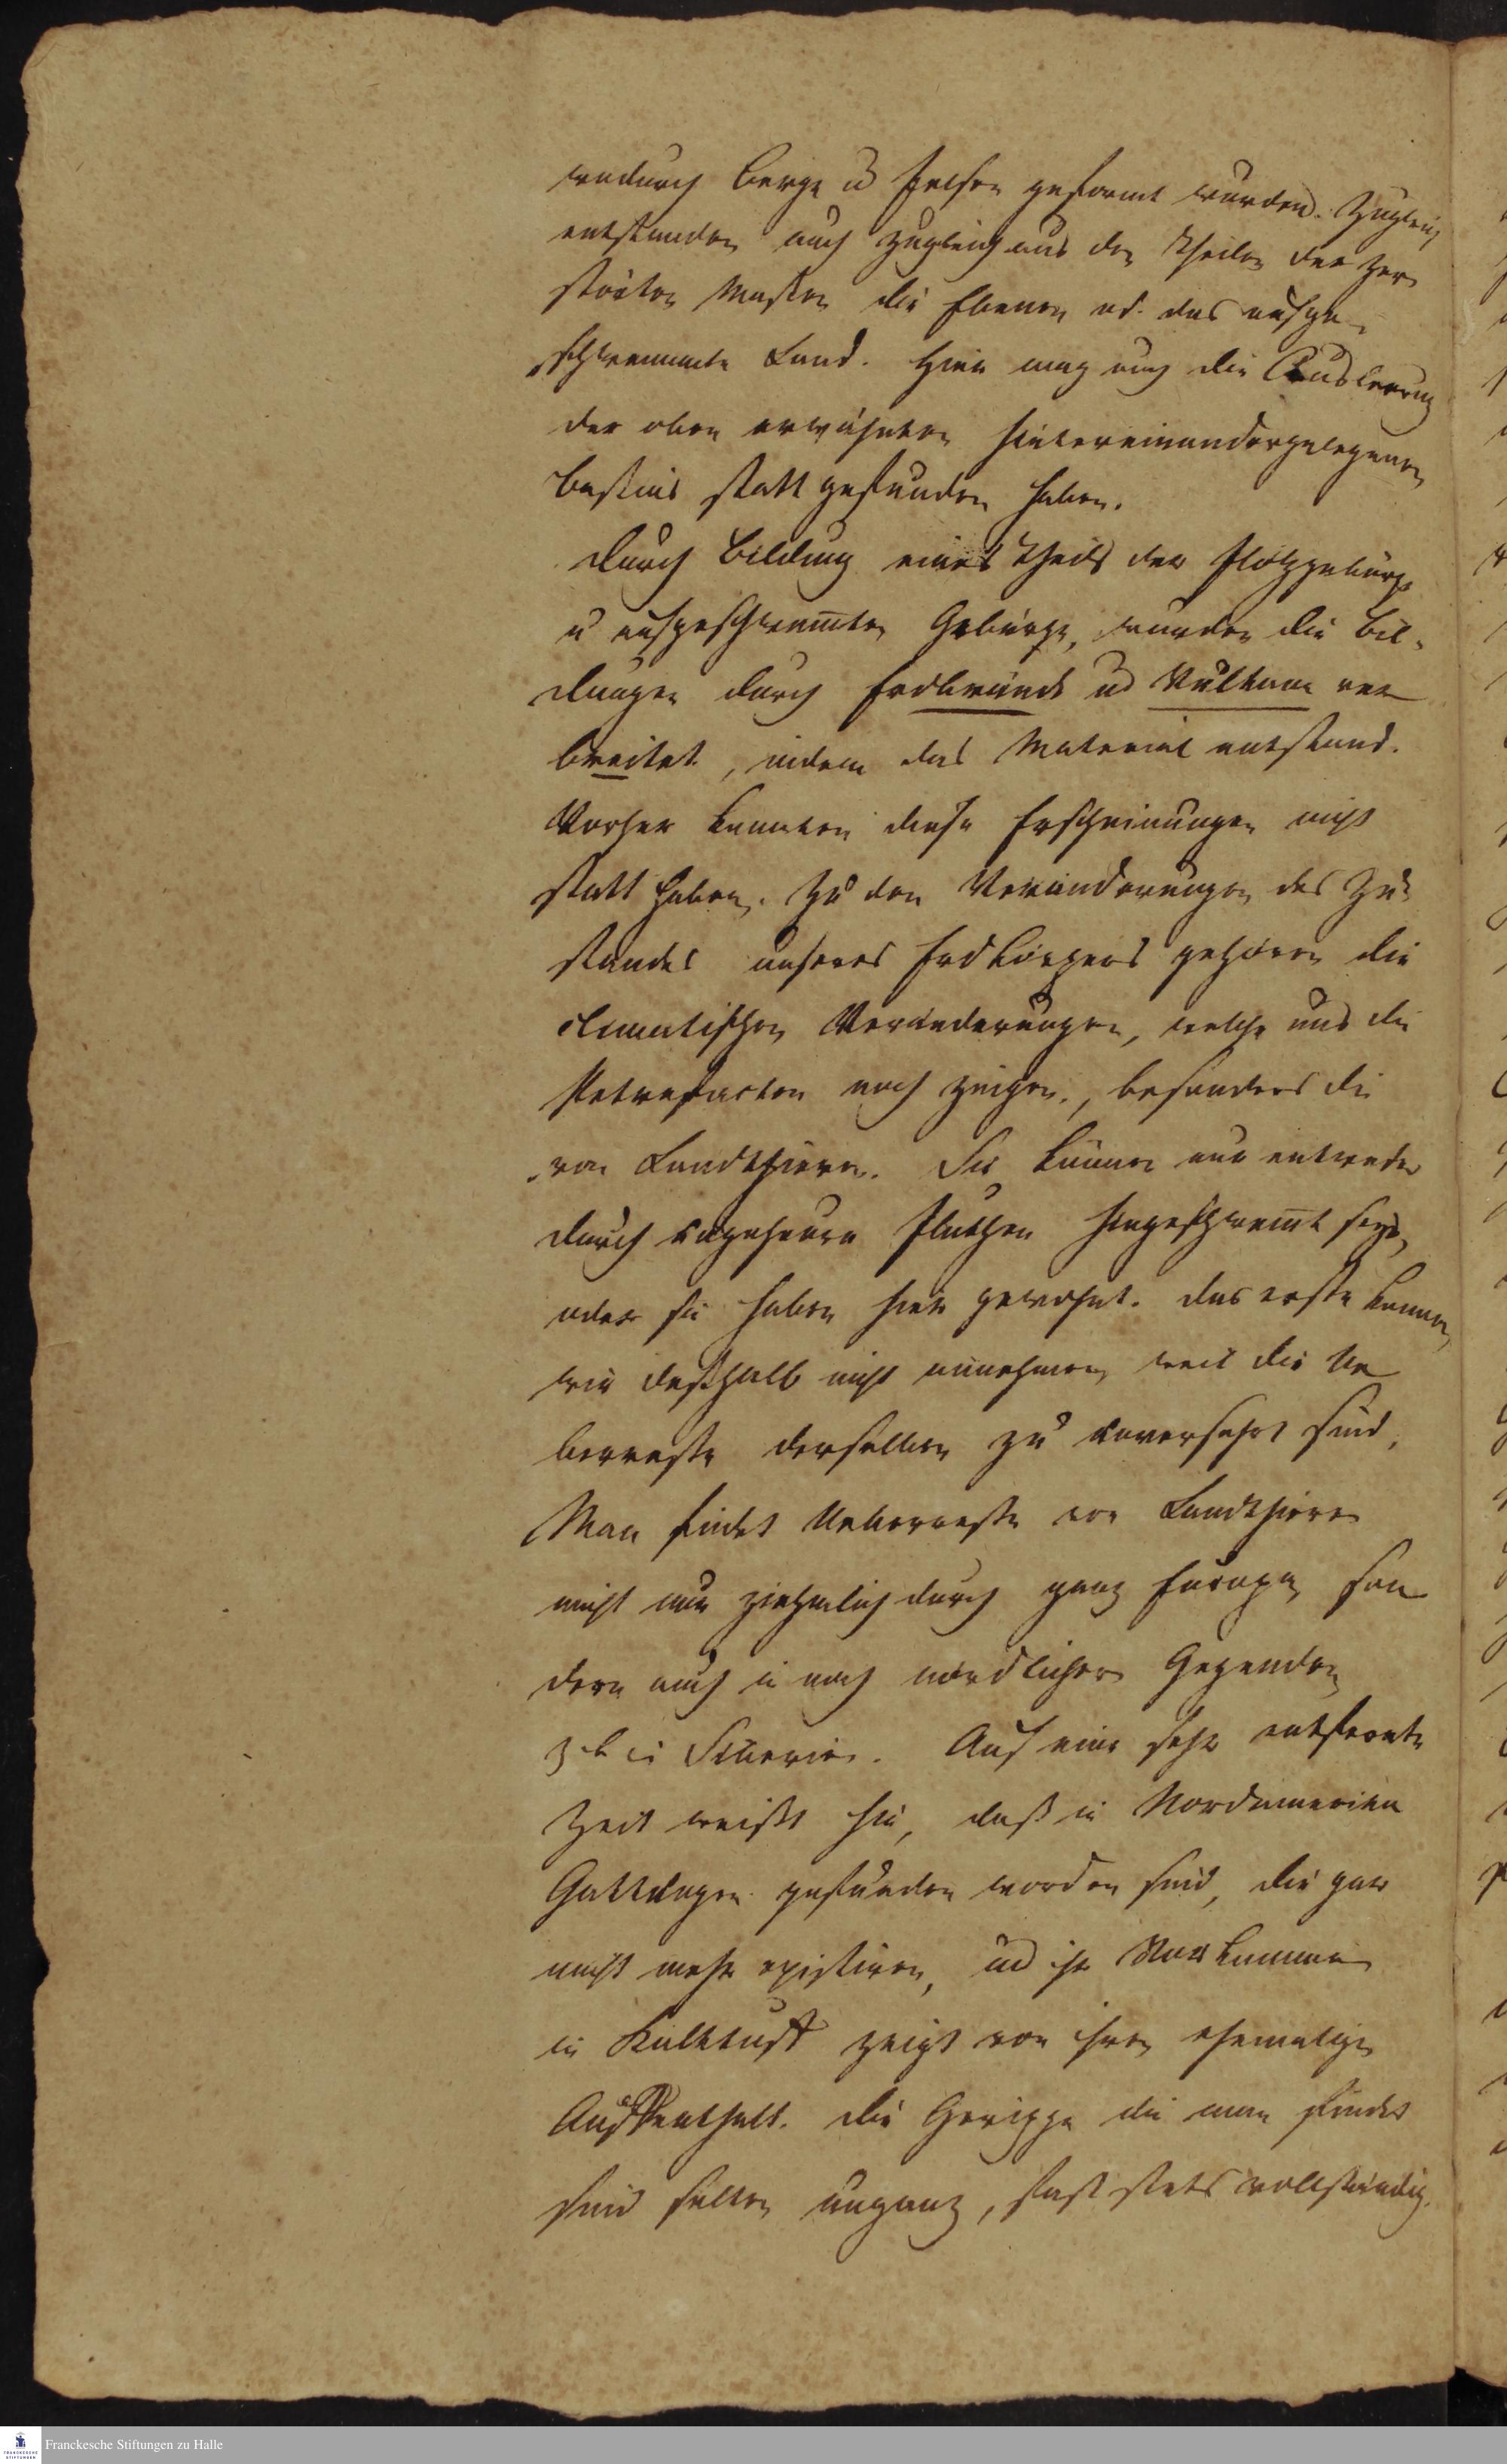 wodurch Berge u Felsen geformt wurden. Zugleich
entstanden auch zugleich aus den Theilen der zer
störten Massen die Ebenen od. das aufge-
schwemmte Land. Hier mag auch die Ausleerung
der oben erwähnten hintereinandergelegenen
Bassins statt gefunden haben.
Durch Bildung eines Theils der Flötzgebürge
u aufgeschwemten Gebürge, wurden die Bil-
dungen durch Erdbrände ud Vulkane ver
breitet, indem das Material entstand.
Vorher konnten diese Erscheinungen nicht
statt haben. Zu den Veränderungen des Zu-
standes unseres Erdkörpers gehören die
climatischen Veränderungen, welche uns die
Petrefacten noch zeigen, besonders die
von Landthieren. Sie können nur entweder
durch ungeheure Fluthen hingeschwemt seyn,
oder sie haben hier gewohnt. Das erste können
wir deßhalb nicht annehmen, weil die Ue
berreste derselben zu unversehrt sind.
Man findet Ueberreste von Landthieren
nicht nur ziehmlich durch ganz Europa, son
dern auch in noch nördlichern Gegenden
z b in Siberien. Auf eine sehr entfernte
Zeit weißt hin, daß in Nordamerika
Gattungen gefunden worden sind, die gar
nicht mehr existiren, ud ihr Vorkommen
in Kalktuff zeigt von ihren ehemaligen
Auffenthalt. Die Gerippe die man findet
sind selten unganz, fast stets vollständig.
Franckesche Stiftungen zu Halle